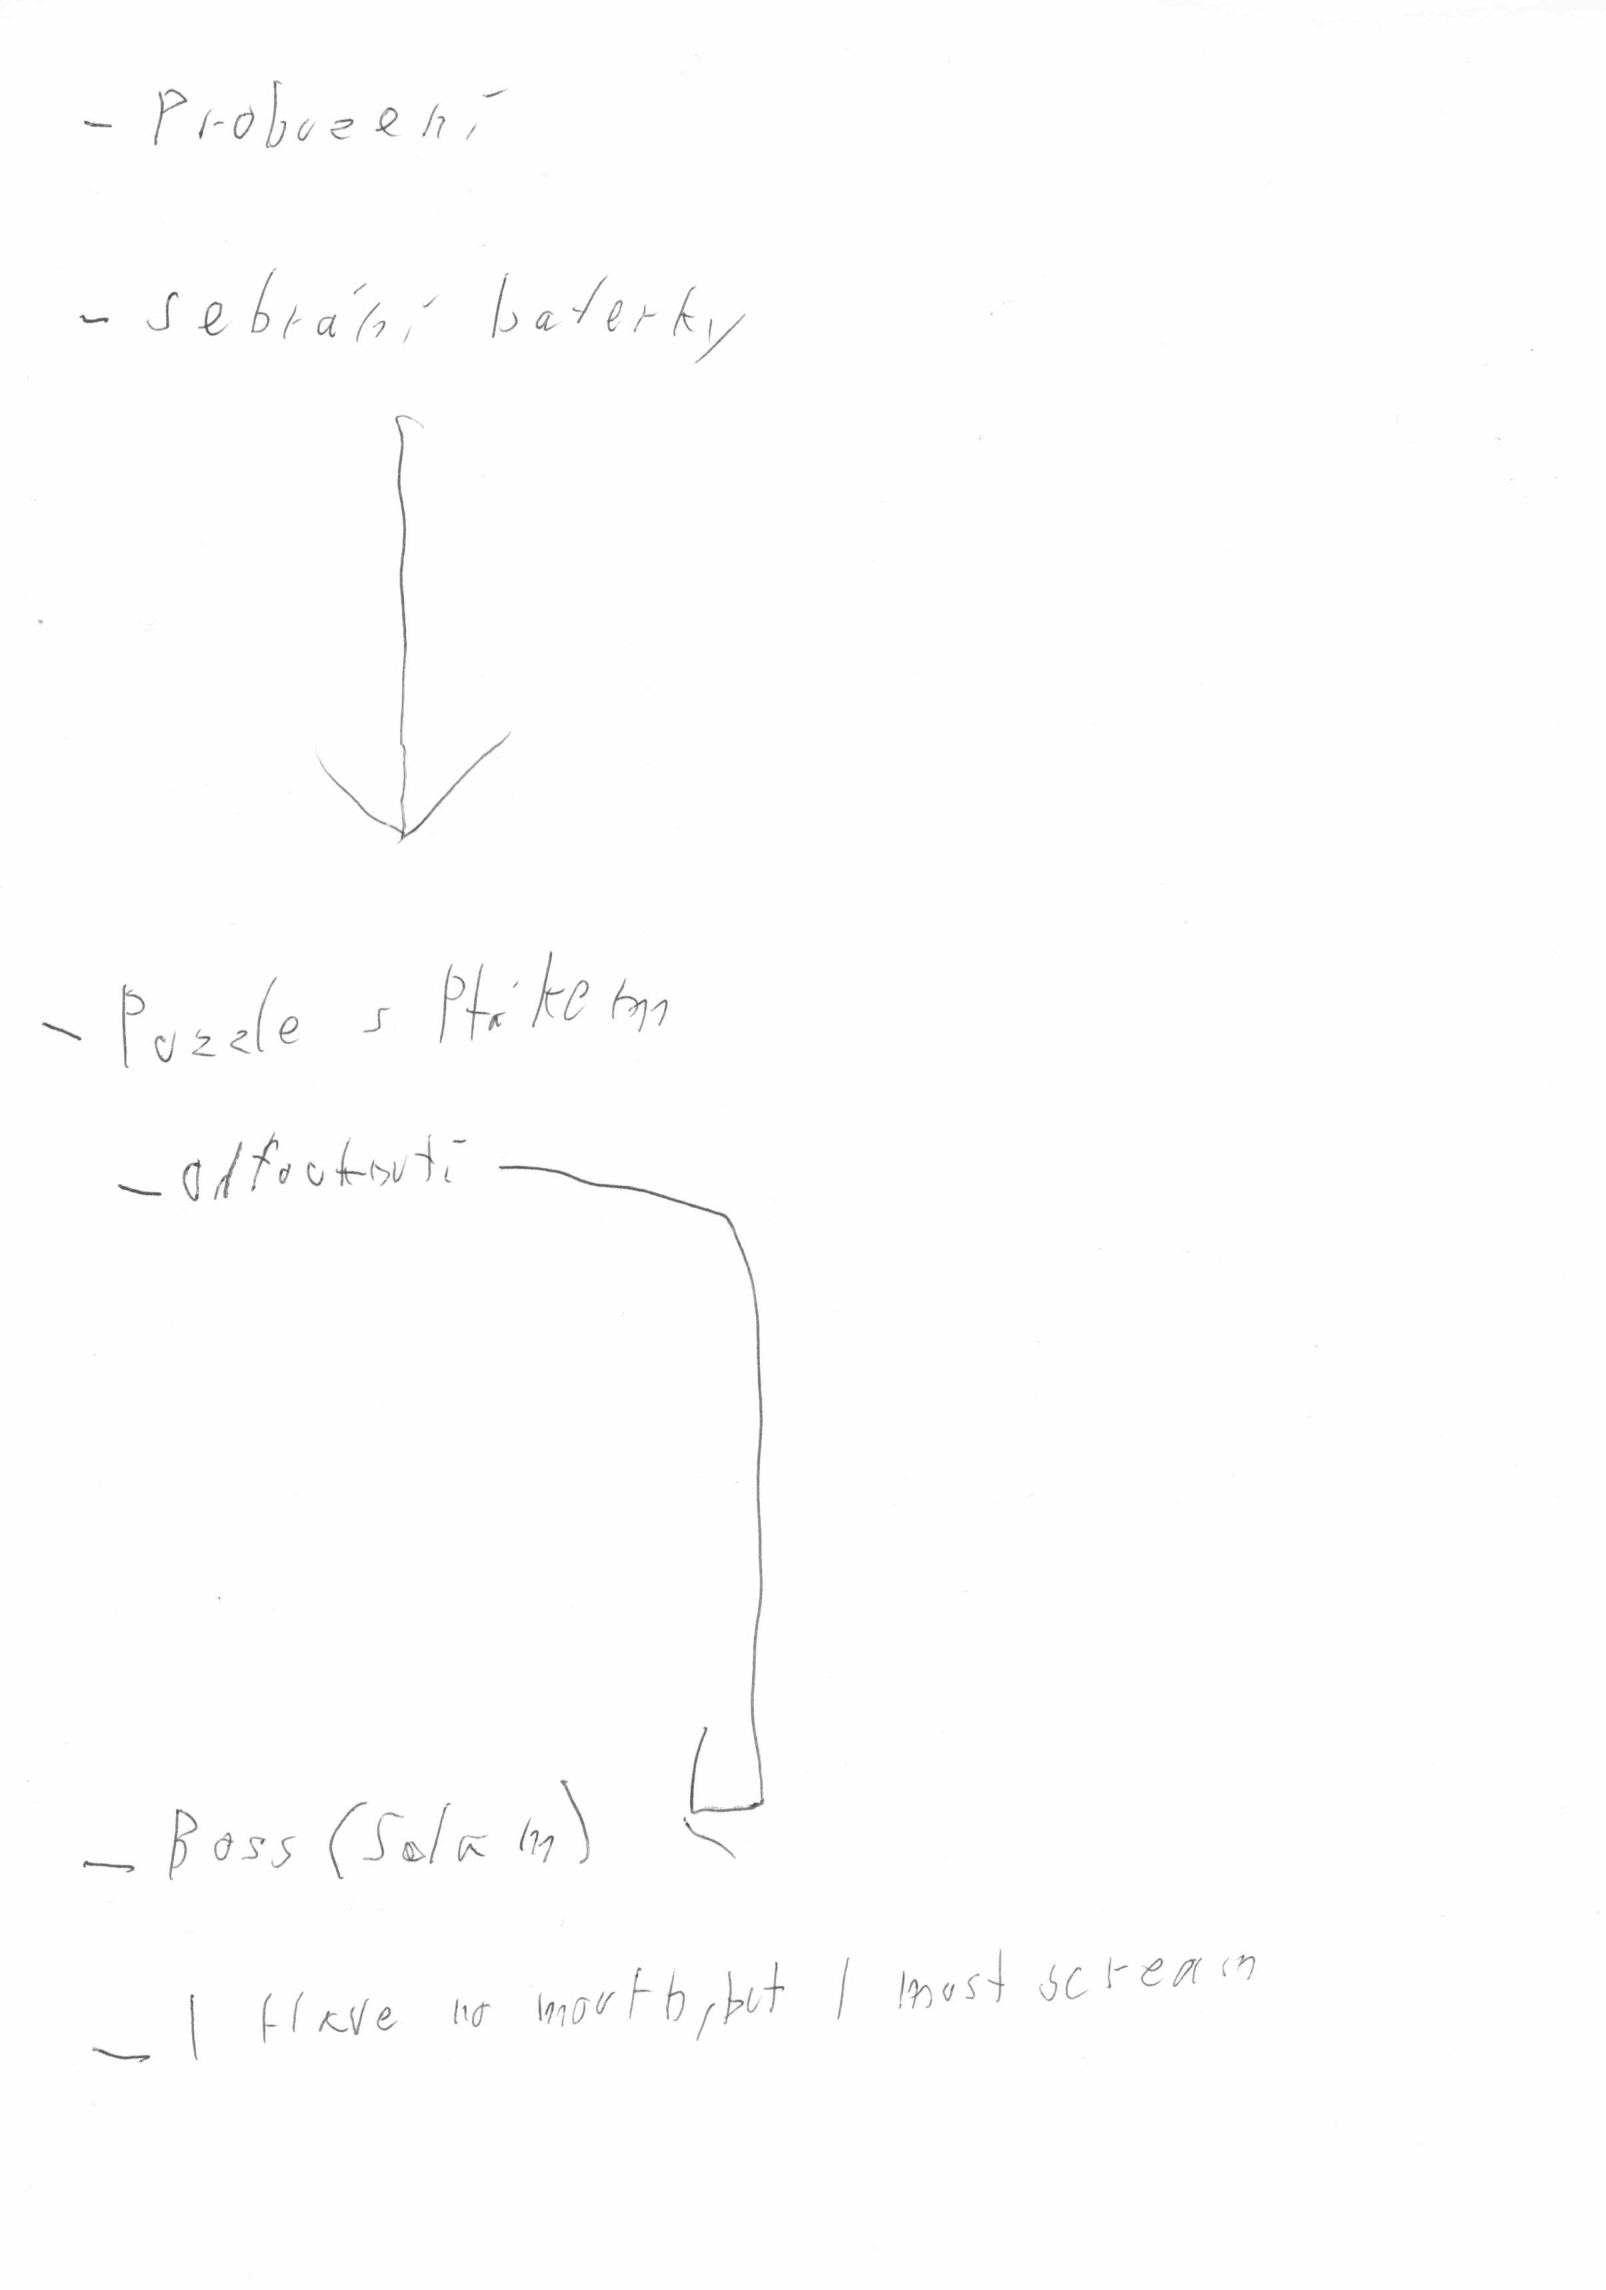 - Probuzení
- sebrání baterky
- Puzzle s Ptákem
- odfouknutí
- Boss (Salam)
- I Have no mouth, but I must scream